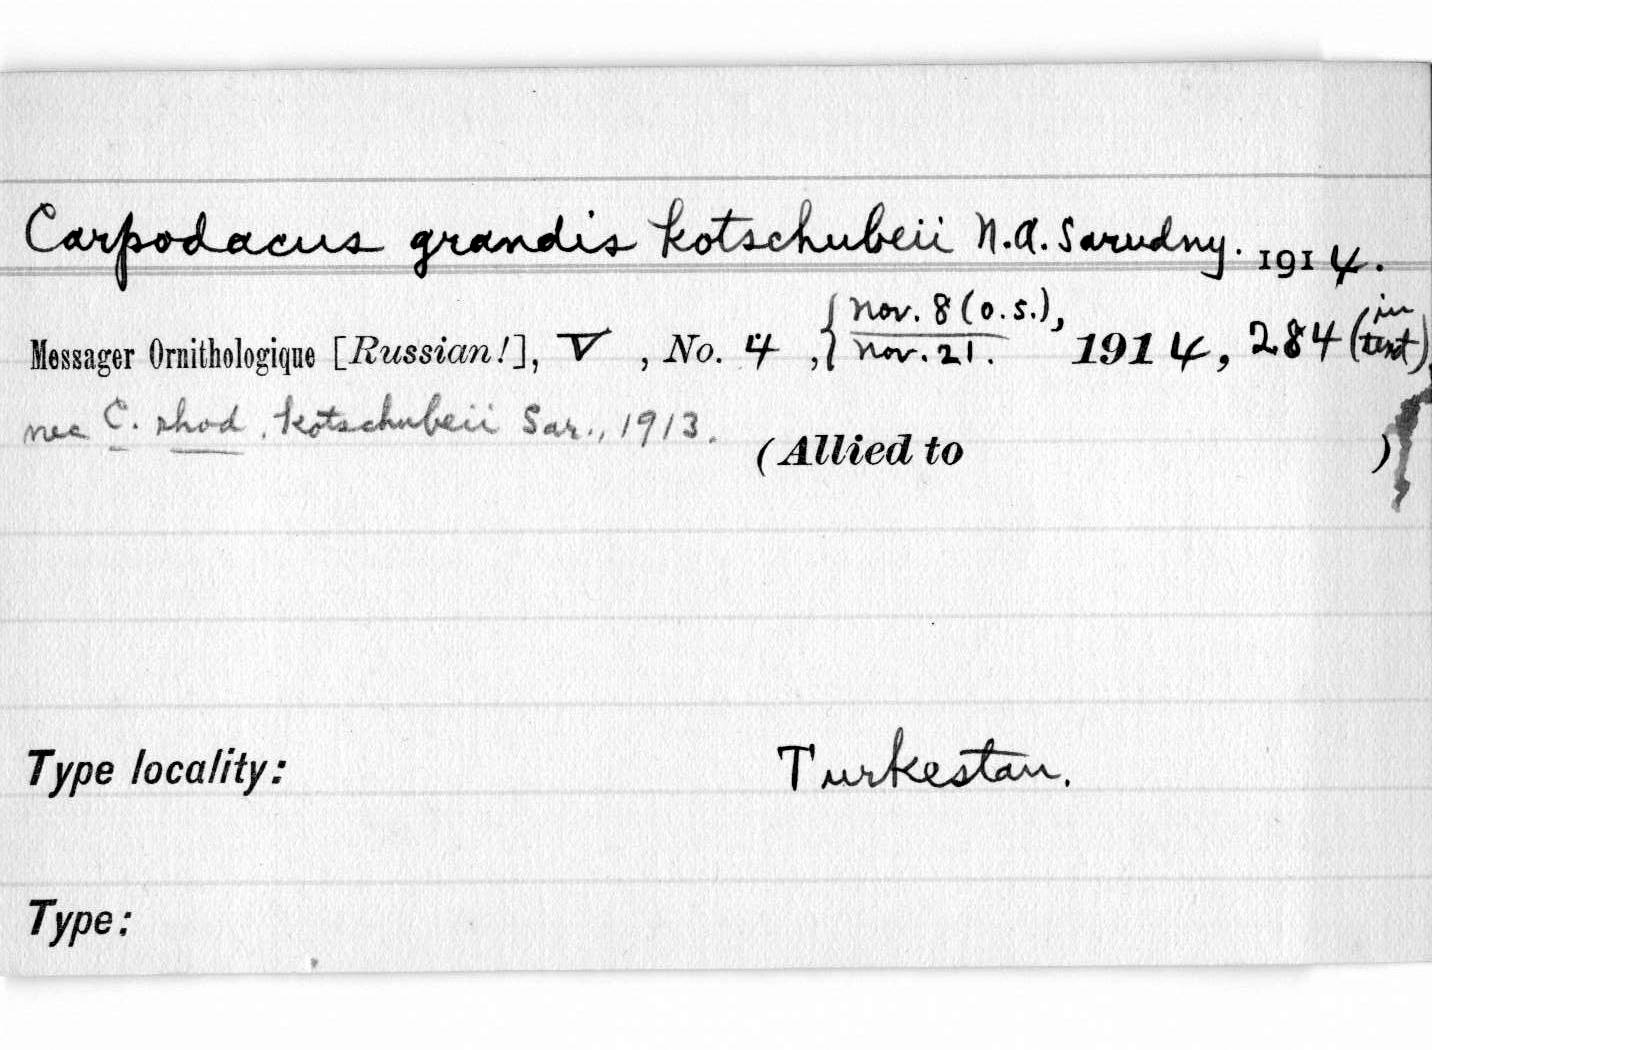 Carpodacus grandis kotschubeii N.A. Sarudny. 1914.
Messager Ornithologique [Russian!], V, No. 4, { Nov. 8 (o.s.), Nov. 21. 1914, 284 (in text),
nec C. rhod. kotschubeii Sar., 1913.
(Allied to )
Type locality: Turkestan.
Type: